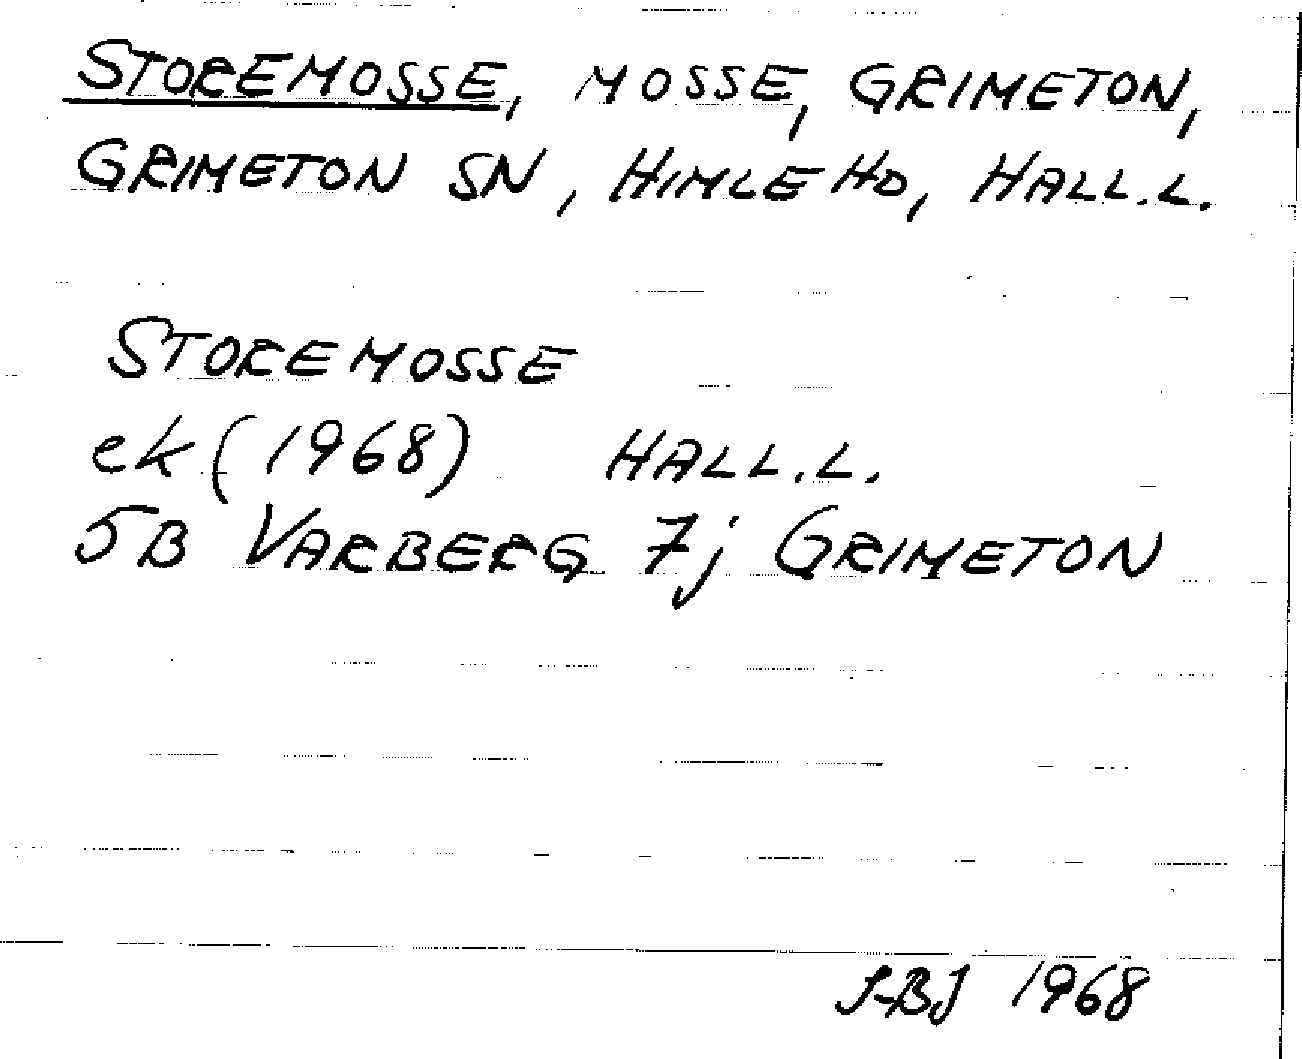 STOREMOSSE, MOSSE, GRIMETON,
GRIMETON SN, HIMLE HD, HALL.L.
STOREMOSSE
ek (1968) HALL.L.
5B VARBERG 7j GRIMETON
S-BJ 1968